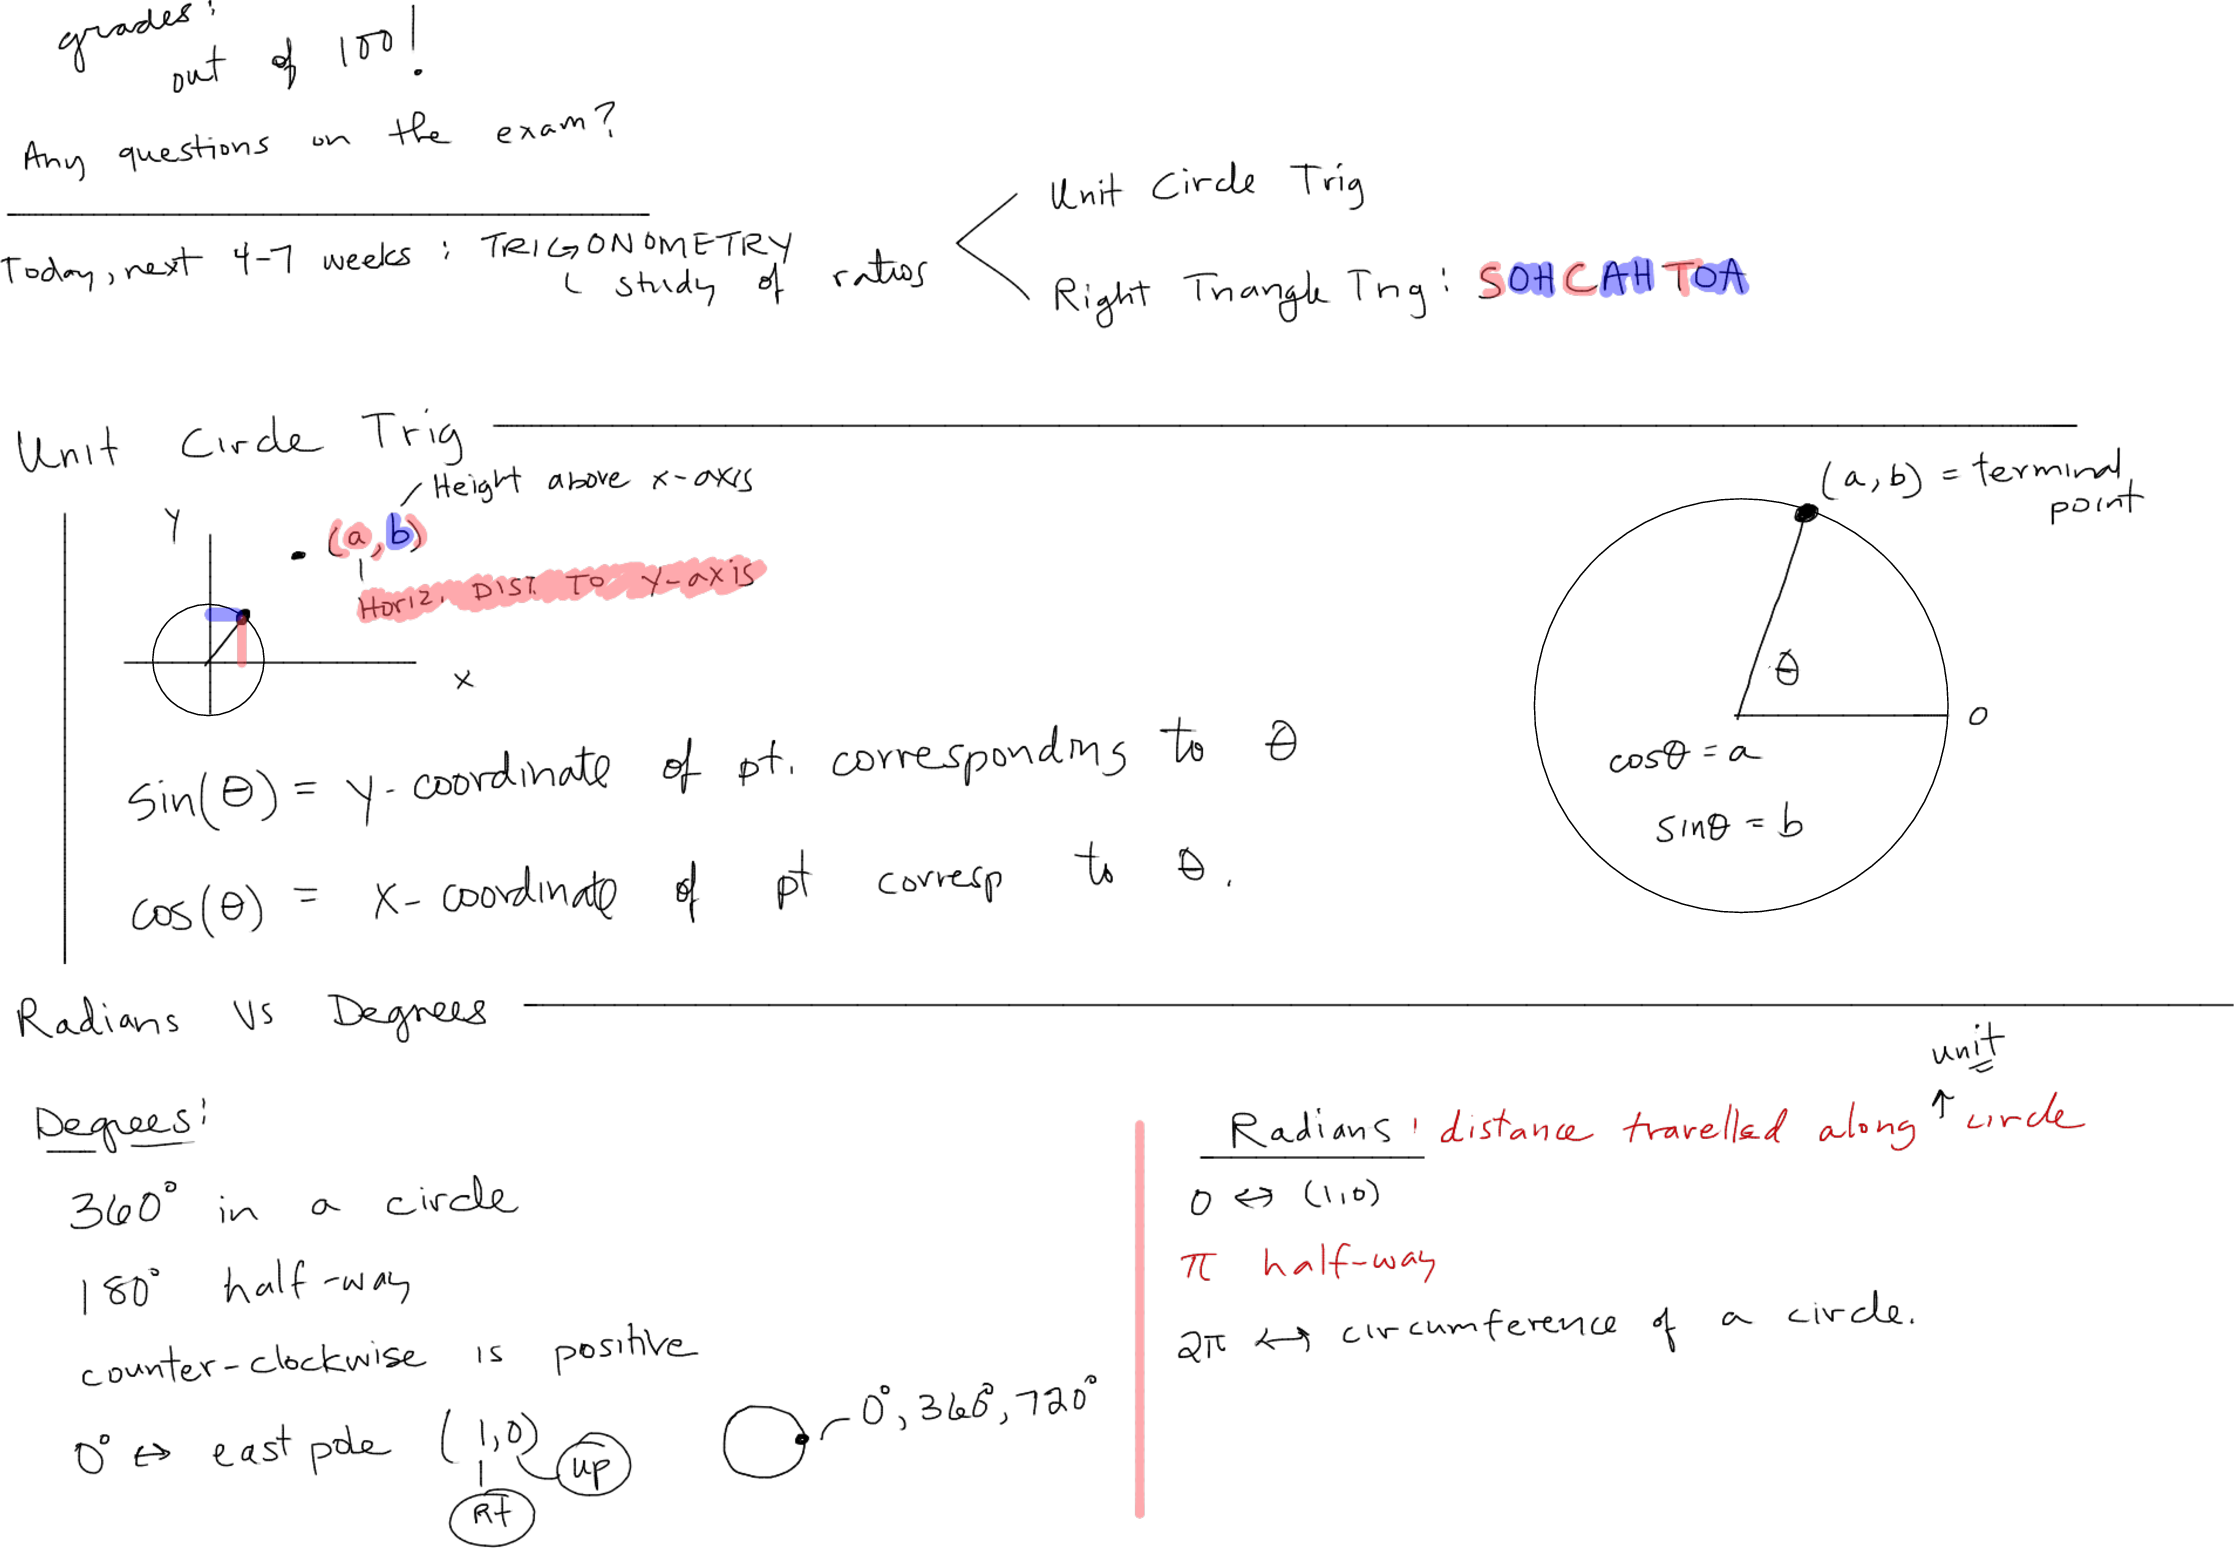 grades:
out of 100!
Any questions on the exam?
Today, next 4-7 weeks : TRIGONOMETRY
study of ratios
Unit Circle Trig
Right Triangle Trig : SOHCAHTOA
Unit Circle Trig
Height above x-axis
y
(a,b)
Horiz. DIST. TO Y-axis
x
(a,b) = terminal
point
θ
0
cosθ = a
sinθ = b
sin(θ) = y-coordinate of pt. corresponding to θ
cos(θ) = x-coordinate of pt corresp to θ.
Radians vs Degrees
Degrees:
360° in a circle
180° half-way
counter-clockwise is positive
0° ↔ east pole (1,0)
up
Rt
0°, 360°, 720°
unit
Radians: distance travelled along ↑ circle
0 ↔ (1,0)
π half-way
2π ↔ circumference of a circle.